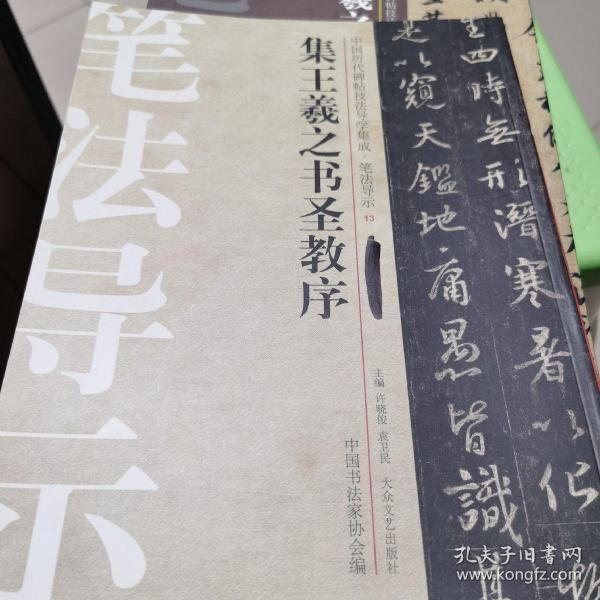 笔法导示
集王羲之书圣教序
中国历代碑帖技法导学集成·笔法导示 13
主编 许晓俊 袁卫民 大众文艺出版社
中国书法家协会编
生四時無形潛寒暑以化
是以窺天鑑地庸愚皆識其
孔夫子旧书网
www.kongfz.com